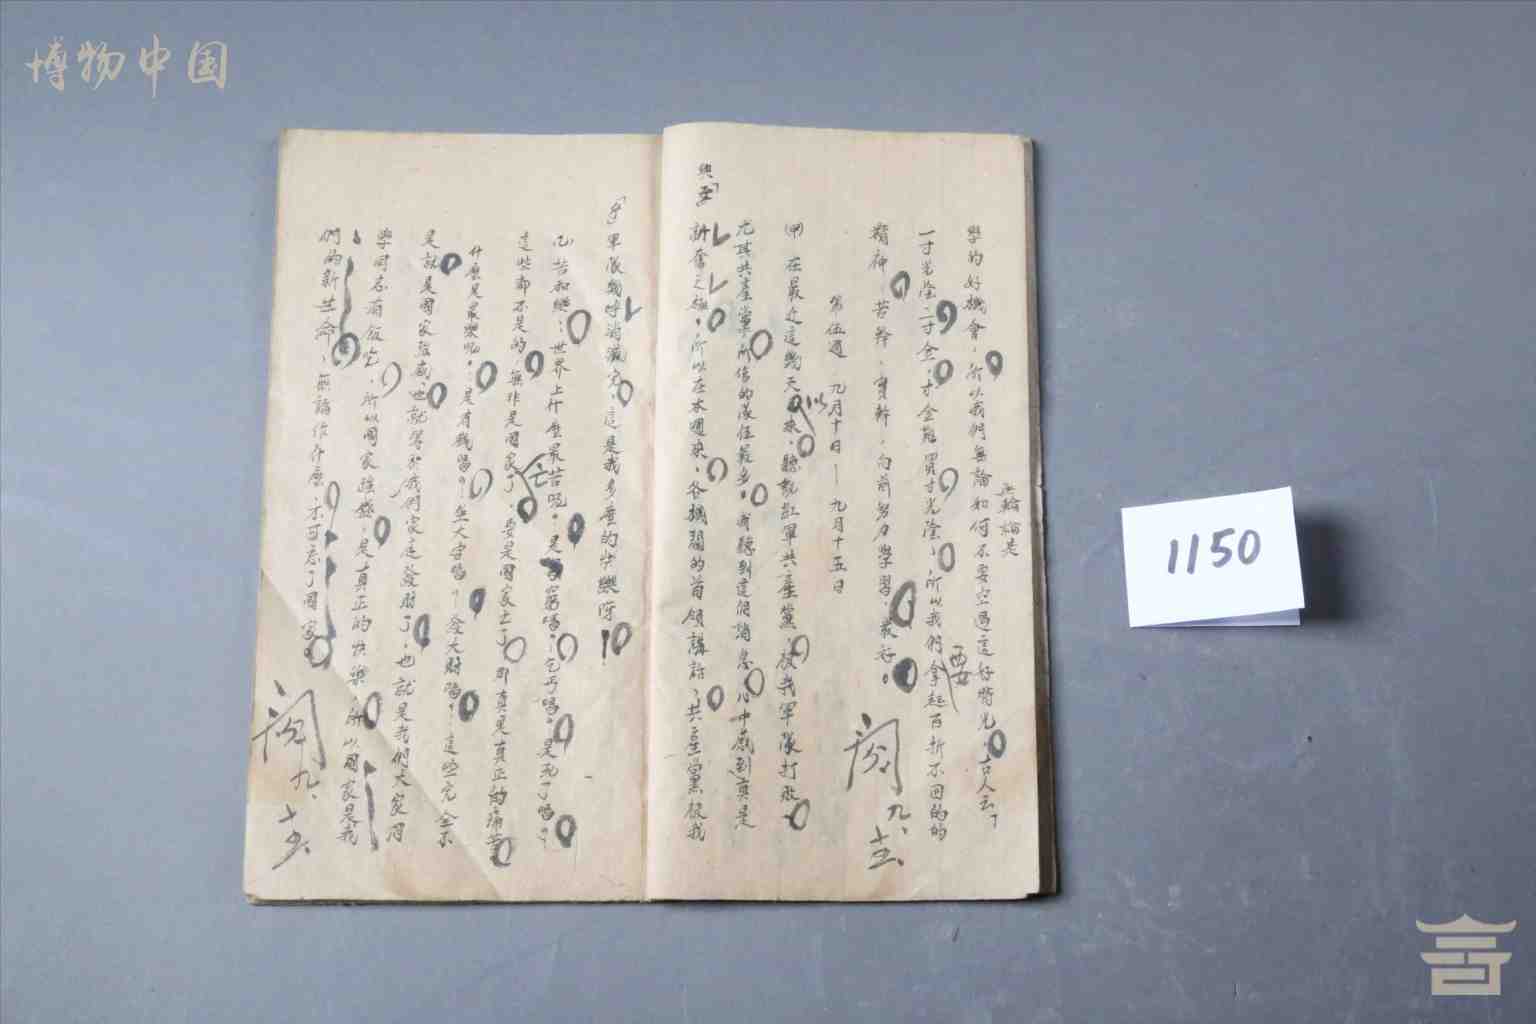 博物中国
學的好機會，所以我們無論如何不要空過這好時光，古人云「
一寸光陰一寸金，寸金難買寸光陰，所以我們要拿起百折不回的的
精神，苦幹，實幹，向前努力學習，最好。
閱 九、十五、
第伍週 九月十日—九月十五日
(甲) 在最近這幾天以來，聽說紅軍共產黨，被我軍隊打敗，
尤其共產黨，所信的隊伍最多。我聽到這個消息，心中感到真是
興奮之極，所以在本週來，各機關的首領講話，共產黨被我
軍隊幾乎消滅完，這是我多麼的快樂呀！
(乙) 苦和樂：世界上什麼最苦呢。是窮嗎？乞丐嗎。是死了嗎？
這些都不是的，無非是國家亡了，要是國家亡了，那真是真正的痛苦
什麼是最樂呢。是有錢嗎？坐大官嗎？發大財嗎？這些完全不
是就是國家強盛，也就等於我們家庭發財了，也就是我們大家同
學同志有飯吃，所以國家強盛，是真正的快樂，所以國家是我
們的新生命，無論作什麼，不可忘了國家。
閱 九、十五、
1150